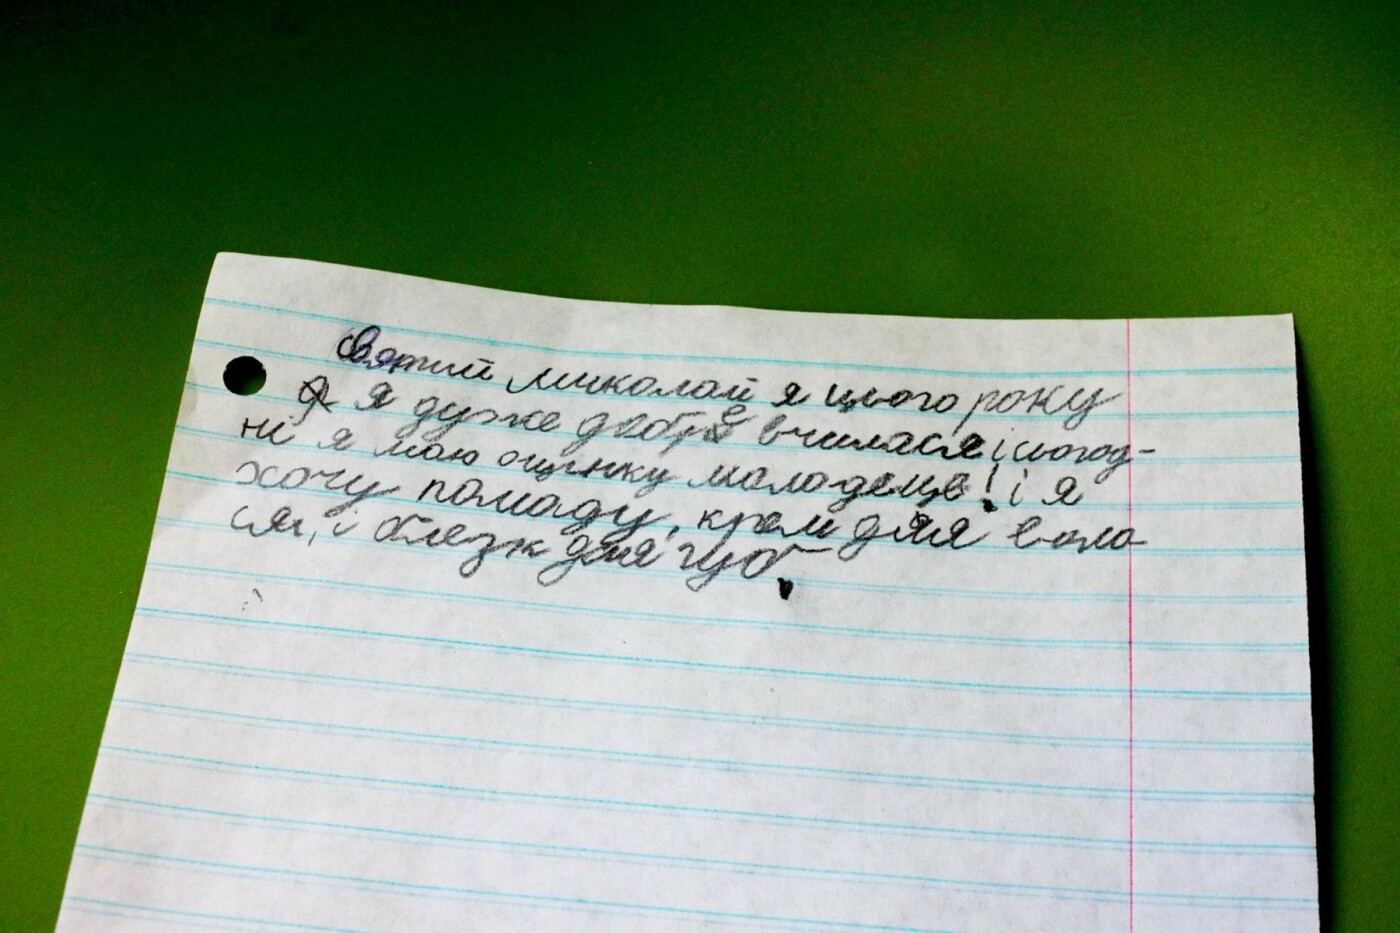 святий миколай я цього року
я дуже добре вчилася і сьогод-
ні я маю оцінку молодець! і я
хочу помаду, крем для воло
ся, і блезк для губ.